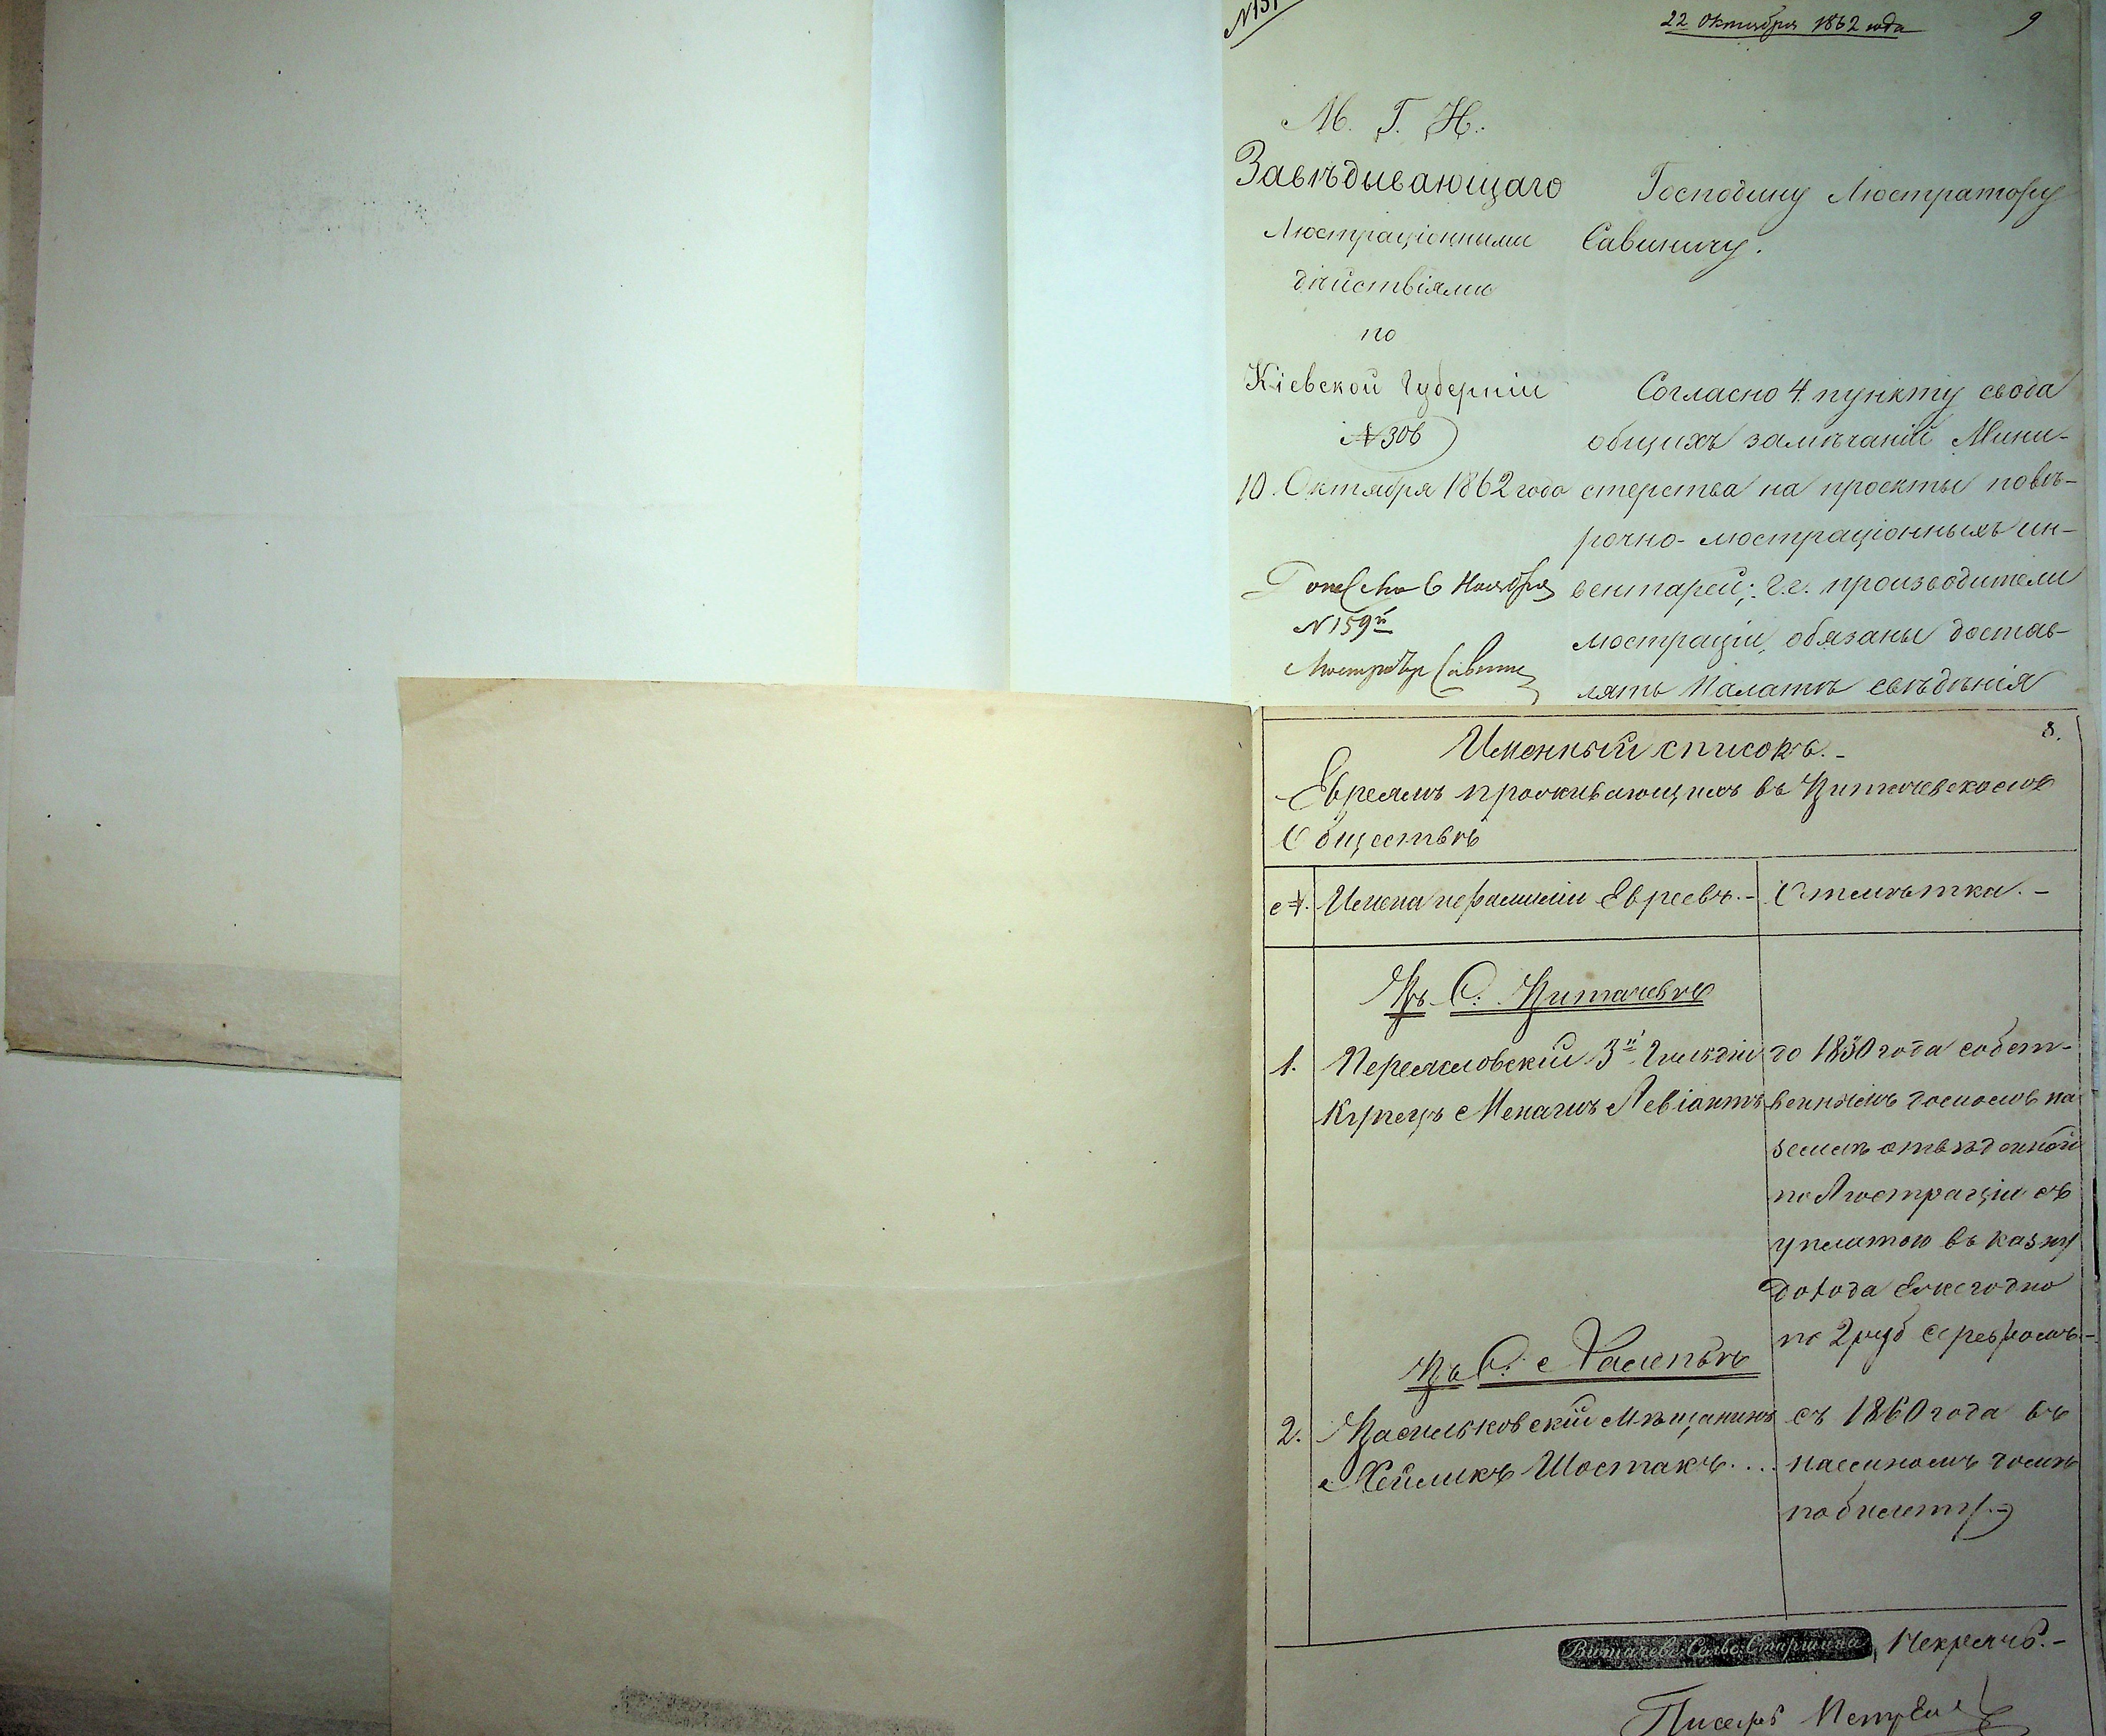 22 Октября 1862 года
9
М. Г. И.
Завѣдывающаго
Люстраціонными
дѣйствіями
по
Кіевской Губерніи
№ 306
10 Октября 1862 года
Донес. за 6 Ноября
№ 159й
Люстраторъ
Господину Люстратору
Савиничу.
Согласно 4 пункту свода
общихъ замѣчаній Мини-
стерства на проекты повѣ-
рочно-люстраціонныхъ ин-
вентарей; г.г. производители
люстраціи, обязаны достав-
лять Палатѣ свѣдѣнія
8.
Именный списокъ.-
Евреямъ проживающимъ въ Витачевскомъ
Обществѣ
№. Имена и фамиліи Евреевъ.- Отмѣтка.-
Въ С. Витачевѣ
1. Переяславскій 3й Гильдіи
Купецъ Менахъ Левіантъ
до 1830 года собст-
веннымъ домомъ на
землѣ отведенной
по Люстраціи съ
уплатою въ казну
дохода Ежегодно
по 2 руб серебромъ.-
Въ С. Халепьѣ
2. Васильковскій Мѣщанинъ
Хейликъ Шостакъ....
съ 1860 года въ
наемномъ домѣ
по билету.-
Витачевс. Сельс. Старшина Некрячъ.-
Писарь